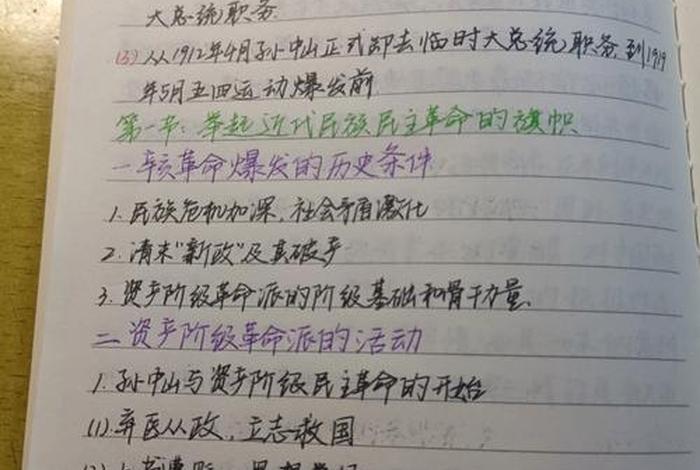 大总统职务.
(3)从1912年4月孙中山正式卸去临时大总统职务 到1919
年5月五四运动爆发前
第一节:举起近代民族民主革命的旗帜
一 辛亥革命爆发的历史条件
1. 民族危机加深,社会矛盾激化
2. 清末"新政"及其破产
3. 资产阶级革命派的阶级基础和骨干力量.
二 资产阶级革命派的活动
1. 孙中山与资产阶级民主革命的开始
(1).弃医从政,立志救国